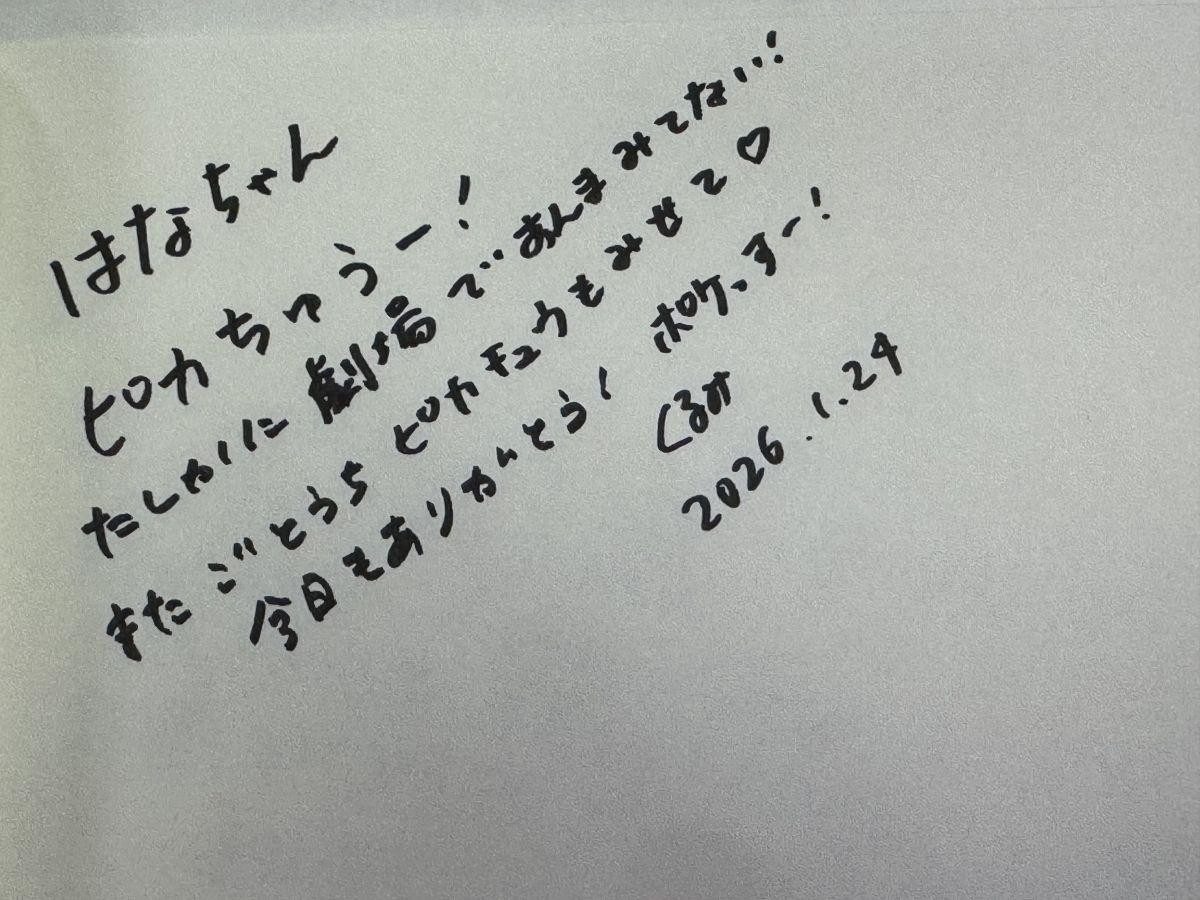 はなちゃん
ピカちゅうー!
たしかに劇場であんまみてない!
またごとうちピカチュウもみせて♡
今日もありがとう! ポケっすー!
くるみ
2026.1.24